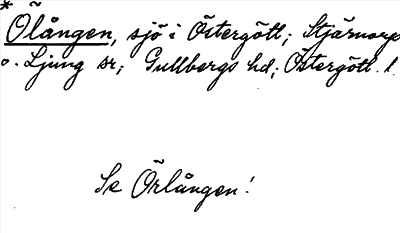 *
Ölången, sjö i Östergötl; Stjärnorp
o. Ljung sr; Gullbergs hd; Östergötl. l.
Se Örlången!